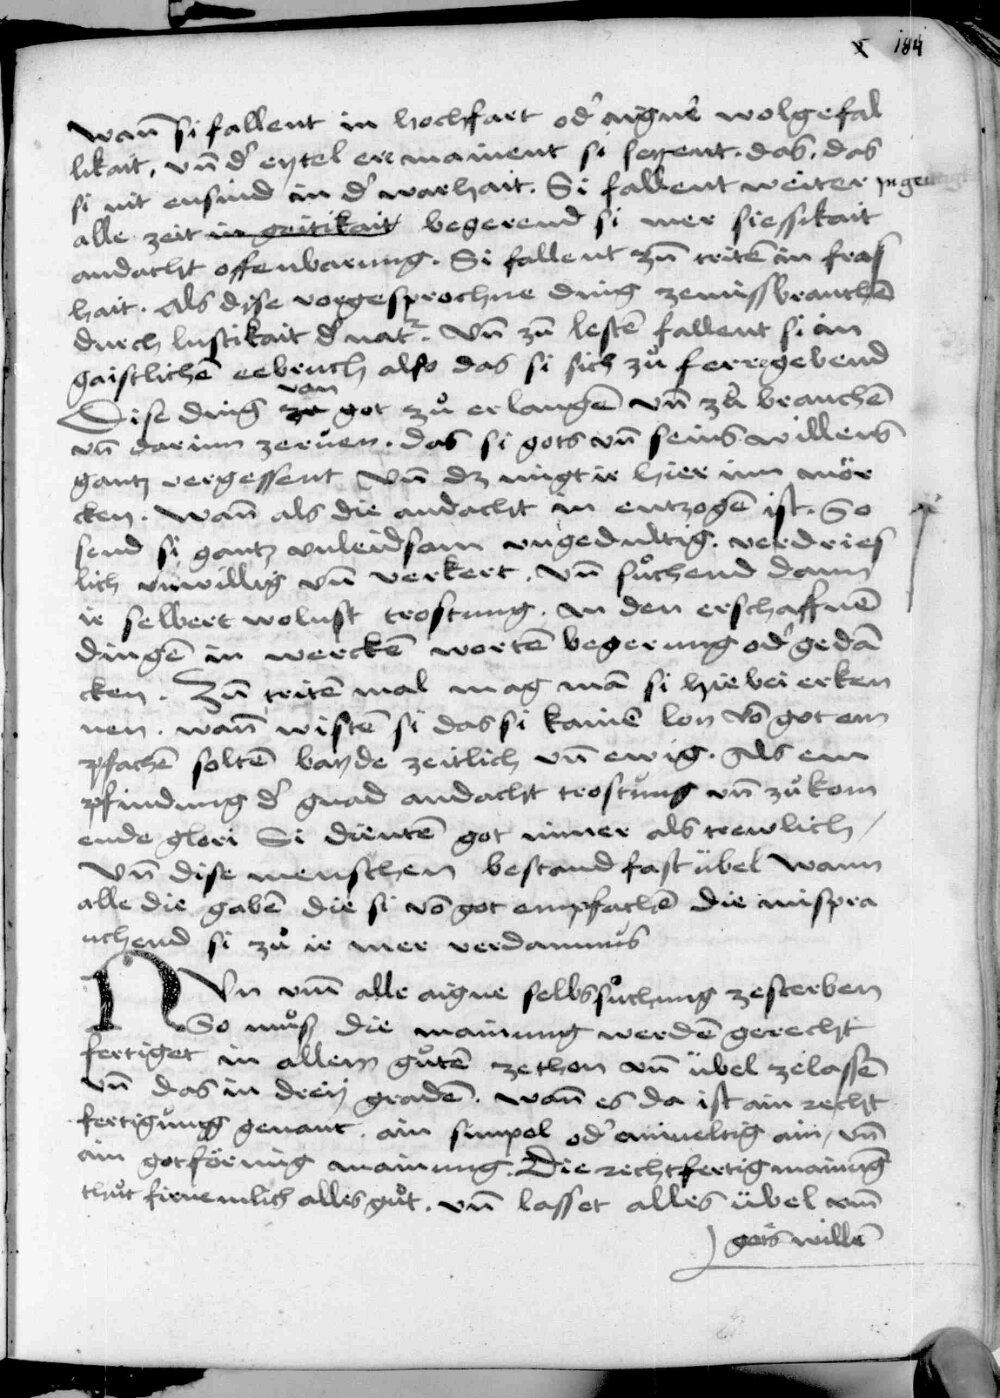 x 184
wan̄ si fallent in hochfart od' aigne' wolgefal
likait, vn̄ d' eytel ere mainent si seyent. das, das
si nit ensind in d' warhait. Si fallent weiter
alle zeit in geitikait begerend si mer siessikait
andacht offenbarung. Si fallent zū triten in fras
hait. Als dise vorgesprochne ding zemissbrauchē
durch lustikait d' nat̾. Vn̄ zū lestē fallent si in
gaistlichē eebruch also das si sich zů ferr gebend
Dise ding ze von got zů erlangē vn̄ zů brauchē
vn̄ darinn zerůen. das si gots vn̄ seins willens
gantz vergessent Vn̄ dz mügt ir hier inn mör
cken. Wan̄ als die andacht in entzogē ist. So
send si gantz vnleidsam vngedultig. verdries
lich vnwillig vn̄ verkert. Vn̄ sůchend dann
ir selbert wolust trostung. in den erschaffnē
dingē in werckē wortē begerung od' gedā
cken. Zū tritē mal mag mā si hie bei erken
nen. wan̄ wistē si das si kainē lon vō got em
pfachē soltē bayde zeitlich vn̄ ewig. Als em
pfindung d' gnad andacht trostung vn̄ zůkom
ende glori Si dientē got nimer als trewlich /
Vn̄ dise menschen bestand fast übel Wann
alle die gabē die si vō got empfachē die mispra
uchend si zů ir mer verdamnus
NVn vm̄ alle aigne selbssůchung zesterben
So můß die mainung werdē gerecht
fertiget in allem gůtē zethon vn̄ übel zelassē
vn̄ das in dreij gradē. Wan̄ es da ist ain recht
fertigung genant. ain simpel od' ainueltig ain / vn̄
ain gotförmig mainung. Die rechtfertig mainūg
thůt firnemlich alles gůt. vn̄ lasset alles übel vm̄
gots willē